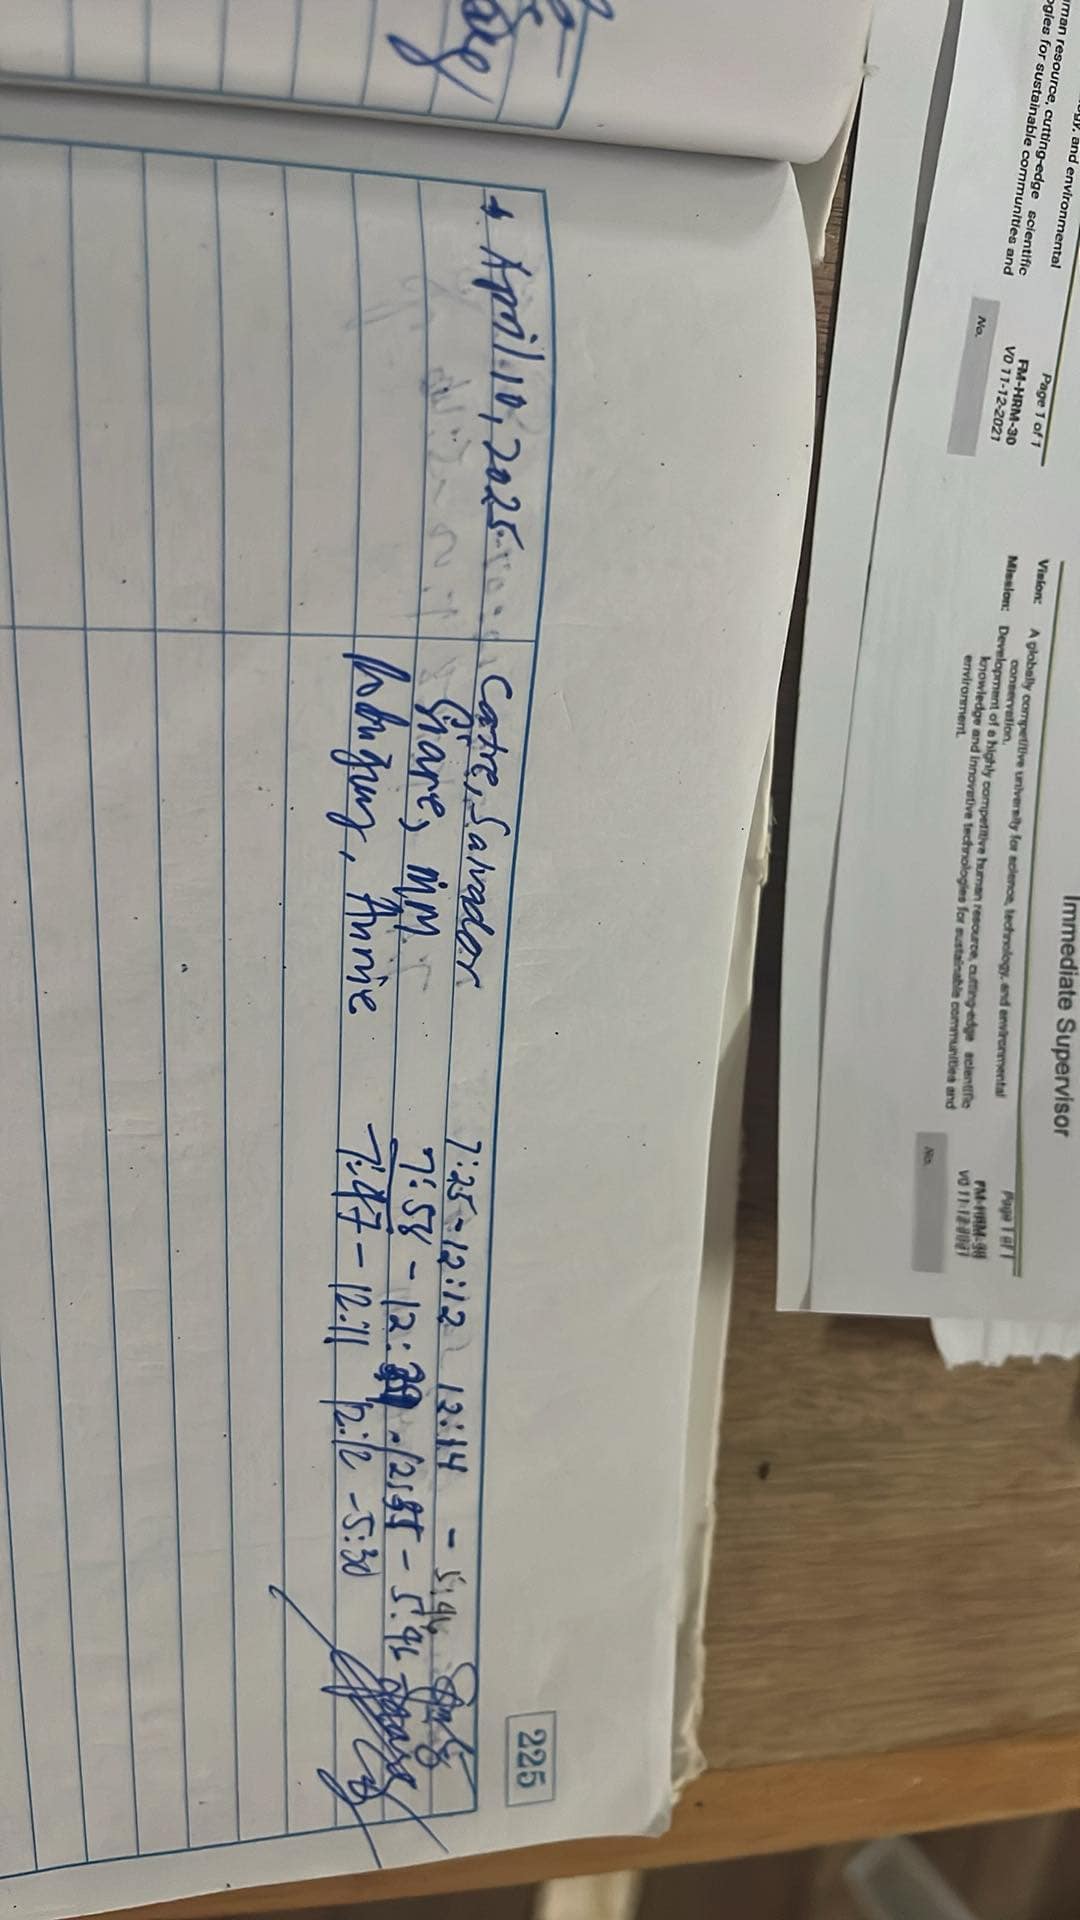 225
April 10, 2025 Catre, Salvador 7:25 - 12:12 12:14 - 5:46
Gjiare, MM. 7:58 - 12: 12: - 5:46
Annie 7:47 - 12:11 12:12 - 5:30
man resource, cutting-edge scientific
ogies for sustainable communities and
gy, and environmental
Page 1 of 1
FM-HRM-30
V0 11-12-2021
No.
Immediate Supervisor
Vision: A globally competitive university for science, technology, and environmental
conservation.
Mission: Development of a highly competitive human resource, cutting-edge scientific
knowledge and innovative technologies for sustainable communities and
environment.
Page 1 of 1
FM-HRM-30
No.